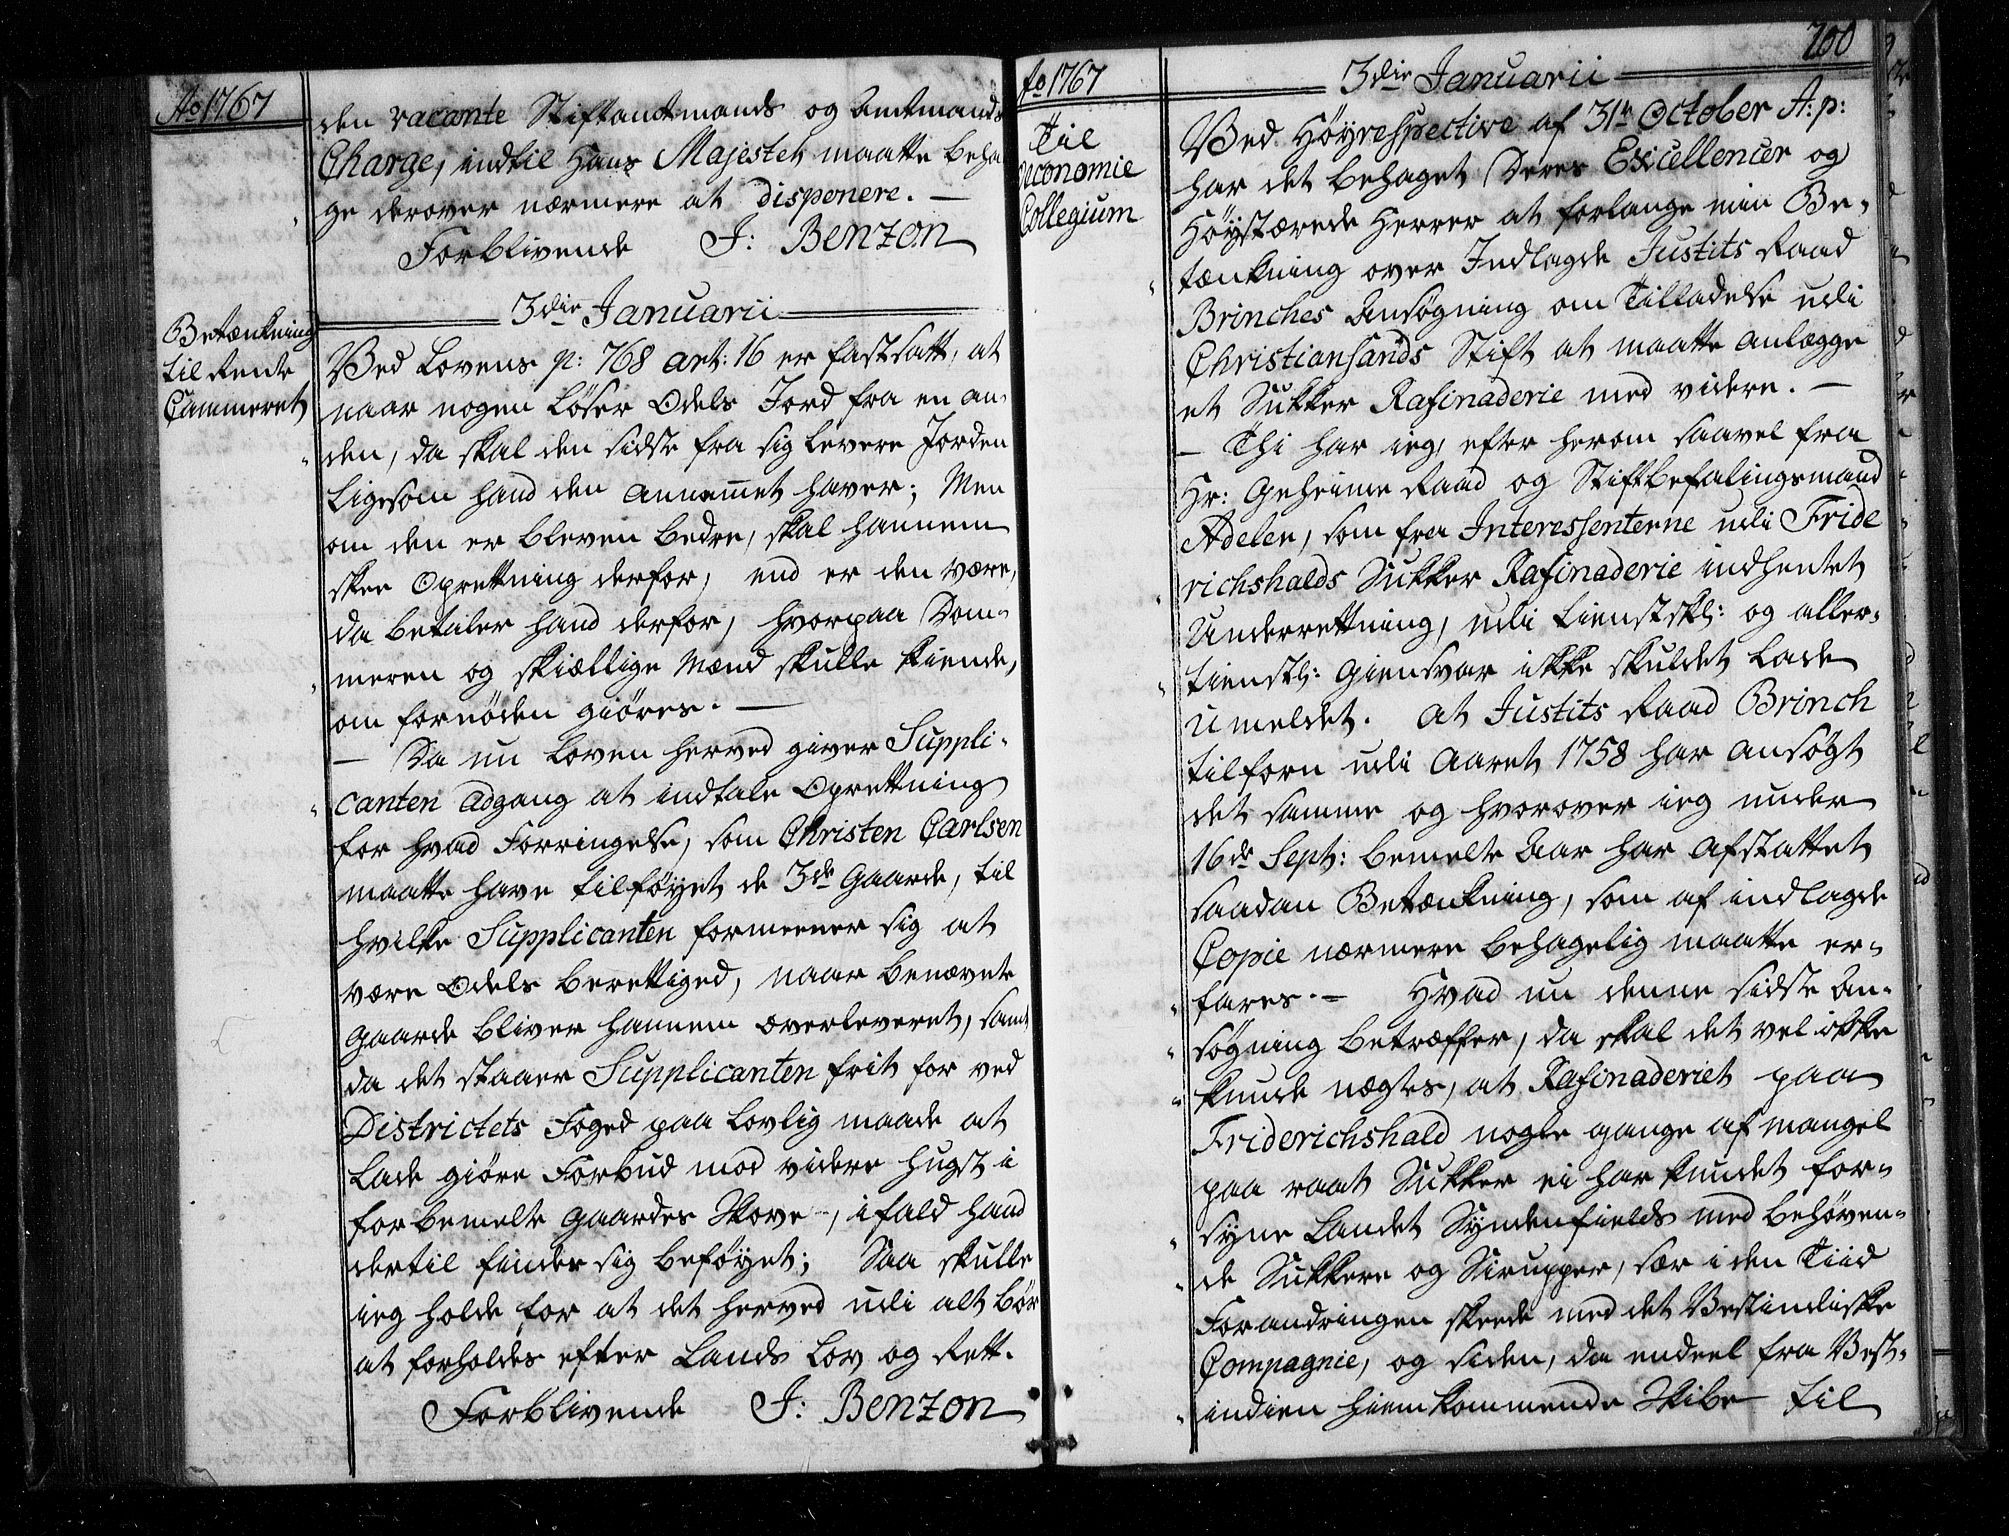 Ao 1767
den vacante Stiftamtmands og Amtmands
Charge, indtil Hans Majestet maatte beha
ge derover nærmere at disponere. —
Forblivende J: Benzon
3die Januarii
Betænkning
til Rente
Cammeret
Ved Lovens p: 768 art: 16 er fastsatt, at
naar nogen løser Odels Jord fra en an-
den, da skal den sidste fra sig levere Jorden
ligesom hand den annammet haver; Men
om den er bleven bedre, skal hannem
skee Oprettning derfor, end er den være,
da betaler hand derfor, hvorpaa Dom-
meren og skiællige Mænd skulle kiende,
om fornøden giøres. —
— Da nu Loven herved giver Suppli-
canten Adgang at indtale Oprettning
for hvad Forringelse, som Christen Carlsen
maatte have tilføyet de 3de Gaarde, til
hvilke Supplicanten formeener sig at
være Odels berettiged, naar benævnte
Gaarde bliver hannem overleveret, samt
da det staaer Supplicanten frit for ved
Districtets Foged paa lovlig maade at
lade giøre Forbud mod videre Hugst i
forbemelte Gaardes Skove, ifald hand
dertil finder sig beføyet; Saa skulle
ieg holde for at det herved udi alt bør
at forholdes efter Lands Lov og Rett.
Forblivende J: Benzon
200
Ao 1767
3die Januarii
Til
Oeconomie
Collegium
Ved Høyrespective af 31te October A: p:
har det behaget Deres Excellencer og
Høystærede Herrer at forlange min Be-
tænkning over Indlagde Justits Raad
Brinches Ansøgning om Tilladelse udi
Christiansands Stift at maatte anlægge
et Sukker Rafinaderie med videre. —
— Thi har ieg, efter herom saavel fra
Hr: Geheime Raad og Stiftbefalingsmand
Adeler, som fra Interessenterne udi Fride
richshalds Sukker Rafinaderie indhentet
Underrettning, udi tienstskl: og aller-
tienstl: Giensvar ikke skuldet lade
umeldet. At Justits Raad Brinch
tilforn udi Aaret 1758 har ansøgt
det samme og hvorover ieg under
16de Sept: bemelte Aar har afstattet
saadan Betænkning, som af indlagde
Copie nærmere behagelig maatte er-
fares. — Hvad nu denne sidste An-
søgning betræffer, da skal det vel ikke
kunde nægtes, at Rafinaderiet paa
Friderichshald nogle gange af mangel
paa raat Sukker ei har kundet for-
syne Landet Syndenfields med behøven-
de Sukkere og Sirupper, sær i den Tiid
Forandringen skeede med det Vestindiske
Compagnie, og siden, da endeel fra Vest-
indien hiemkommende Skibe til